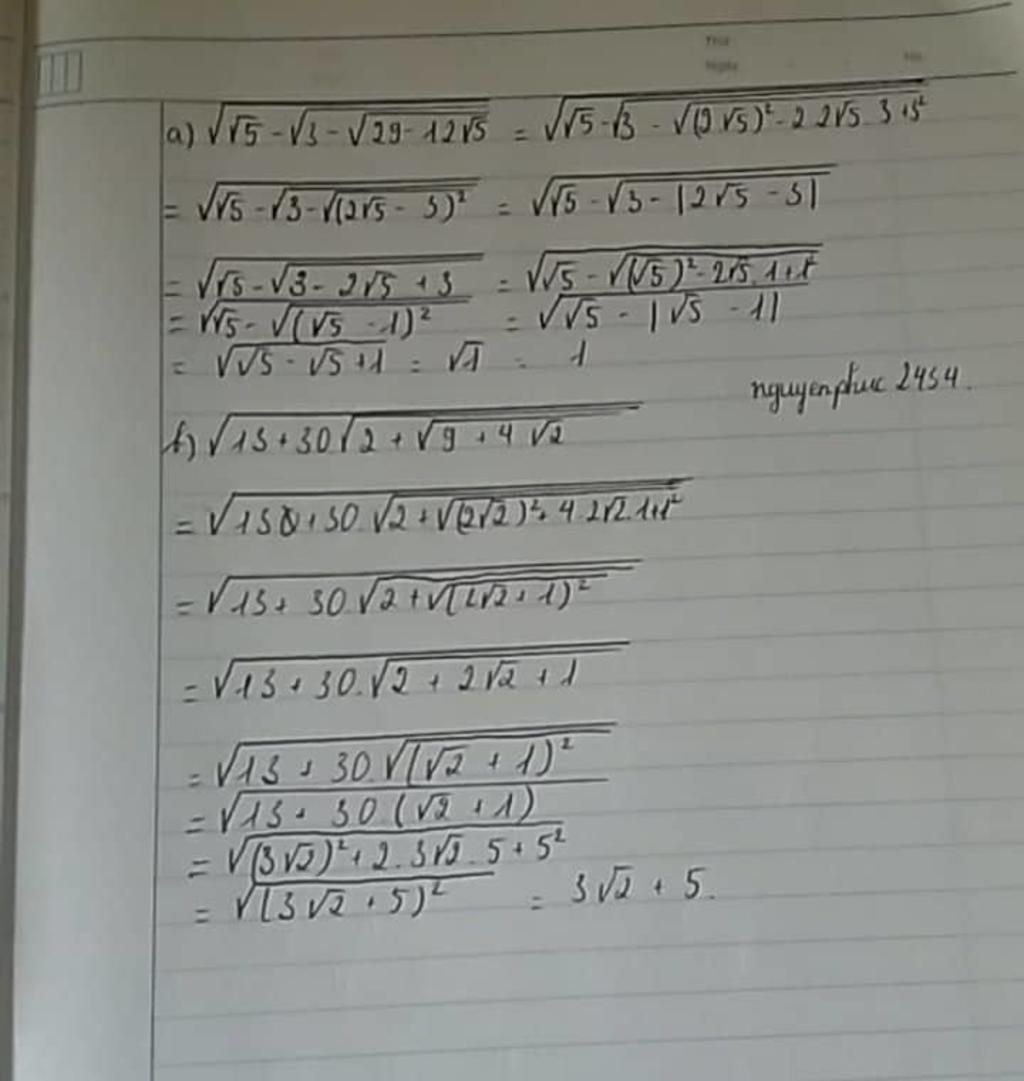 a) √√5 - √3 - √29 - 12√5 = √√5 - √3 - √(2√5)² - 2.2√5.3 + 3²
= √√5 - √3 - √(2√5 - 3)² = √√5 - √3 - |2√5 - 3|
= √√5 - √3 - 2√5 + 3 = √√5 - √(√5)² - 2√5.1 + 1²
= √√5 - √(√5 - 1)² = √√5 - |√5 - 1|
= √√5 - √5 + 1 = √1 = 1
nguyenphuc 2454.
b) √13 + 30√2 + √9 + 4√2
= √13 + 30.√2 + √(2√2)² + 4.2√2.1+1²
= √13 + 30.√2 + √(2√2 + 1)²
= √13 + 30.√2 + 2√2 + 1
= √13 + 30.√(√2 + 1)²
= √13 + 30(√2 + 1)
= √(3√2)² + 2.3√2.5 + 5²
= √(3√2 + 5)² = 3√2 + 5.